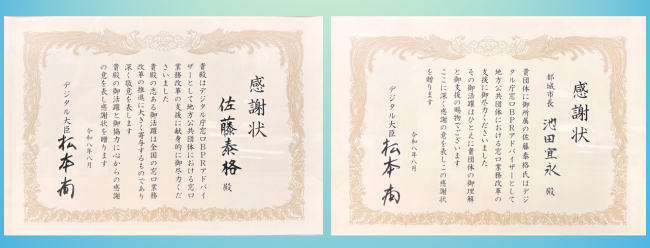 感謝状
佐藤泰格 殿
貴殿はデジタル庁窓口BPRアドバイ
ザーとして地方公共団体における窓口
業務改革の支援に献身的に御尽力くだ
さいました
貴殿の志ある御活躍は全国の窓口業務
改革の推進に大きく寄与するものであり
深く敬意を表します
貴殿の御活躍と御協力に心からの感謝
の意を表し感謝状を贈ります
令和八年八月
デジタル大臣 松本尚
感謝状
都城市長 池田宜永 殿
貴団体に御所属の佐藤泰格氏はデジ
タル庁窓口BPRアドバイザーとして
地方公共団体における窓口業務改革の
支援に御尽力くださいました
その御活躍はひとえに貴団体の御理解
と御支援の賜物でございます
ここに深く感謝の意を表しこの感謝状
を贈ります
令和八年八月
デジタル大臣 松本尚